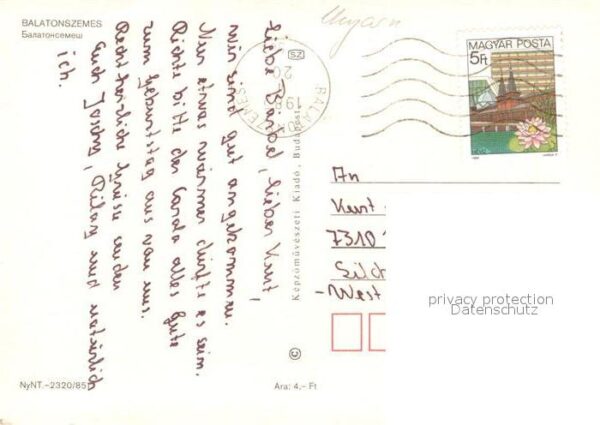 BALATONSZEMES
Балатонсемеш
Ungarn
MAGYAR POSTA
5Ft
SZ
20
198
BALATONSZEMES
Liebe Bärbel, lieber Kurt,
wir sind gut angekommen.
Nur etwas wärmer dürfte es sein.
Richte bitte der Carola alles Gute
zum Geburtstag aus von uns.
Recht herzliche Grüsse senden
Euch Joschy, und natürlich
ich.
Képzőművészeti Kiadó, Budapest
©
An
Kurt
7310
-West
privacy protection
Datenschutz
NyNT.-2320/85
Ára: 4,- Ft